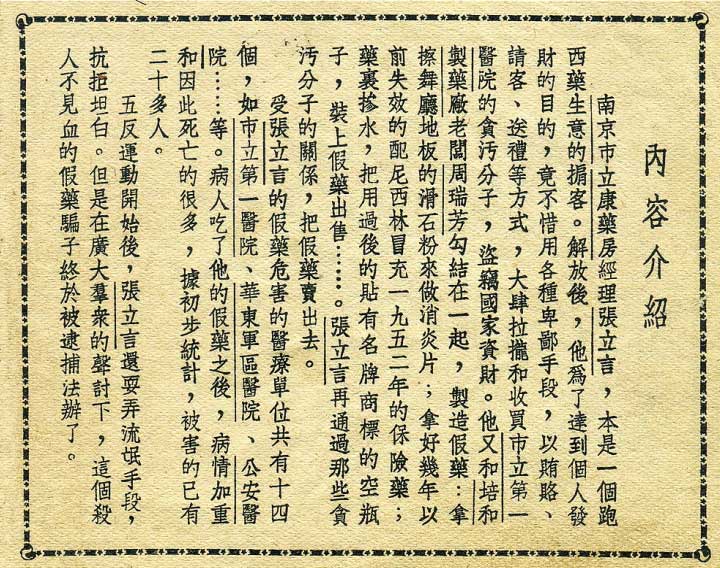 內容介紹
南京市立康藥房經理張立言，本是一個跑
西藥生意的掮客。解放後，他爲了達到個人發
財的目的，竟不惜用各種卑鄙手段，以賄賂、
請客、送禮等方式，大肆拉攏和收買市立第一
醫院的貪汚分子，盜竊國家資財。他又和培和
製藥廠老闆周瑞芳勾結在一起，製造假藥：拿
擦舞廳地板的滑石粉來做消炎片；拿好幾年以
前失效的配尼西林冒充一九五二年的保險藥；
藥裏摻水，把用過後的貼有名牌商標的空瓶
子，裝上假藥出售……。張立言再通過那些貪
汚分子的關係，把假藥賣出去。
受張立言的假藥危害的醫療單位共有十四
個，如市立第一醫院、華東軍區醫院、公安醫
院……等。病人吃了他的假藥之後，病情加重
和因此死亡的很多，據初步統計，被害的已有
二十多人。
五反運動開始後，張立言還耍弄流氓手段，
抗拒坦白。但是在廣大羣衆的聲討下，這個殺
人不見血的假藥騙子終於被逮捕法辦了。